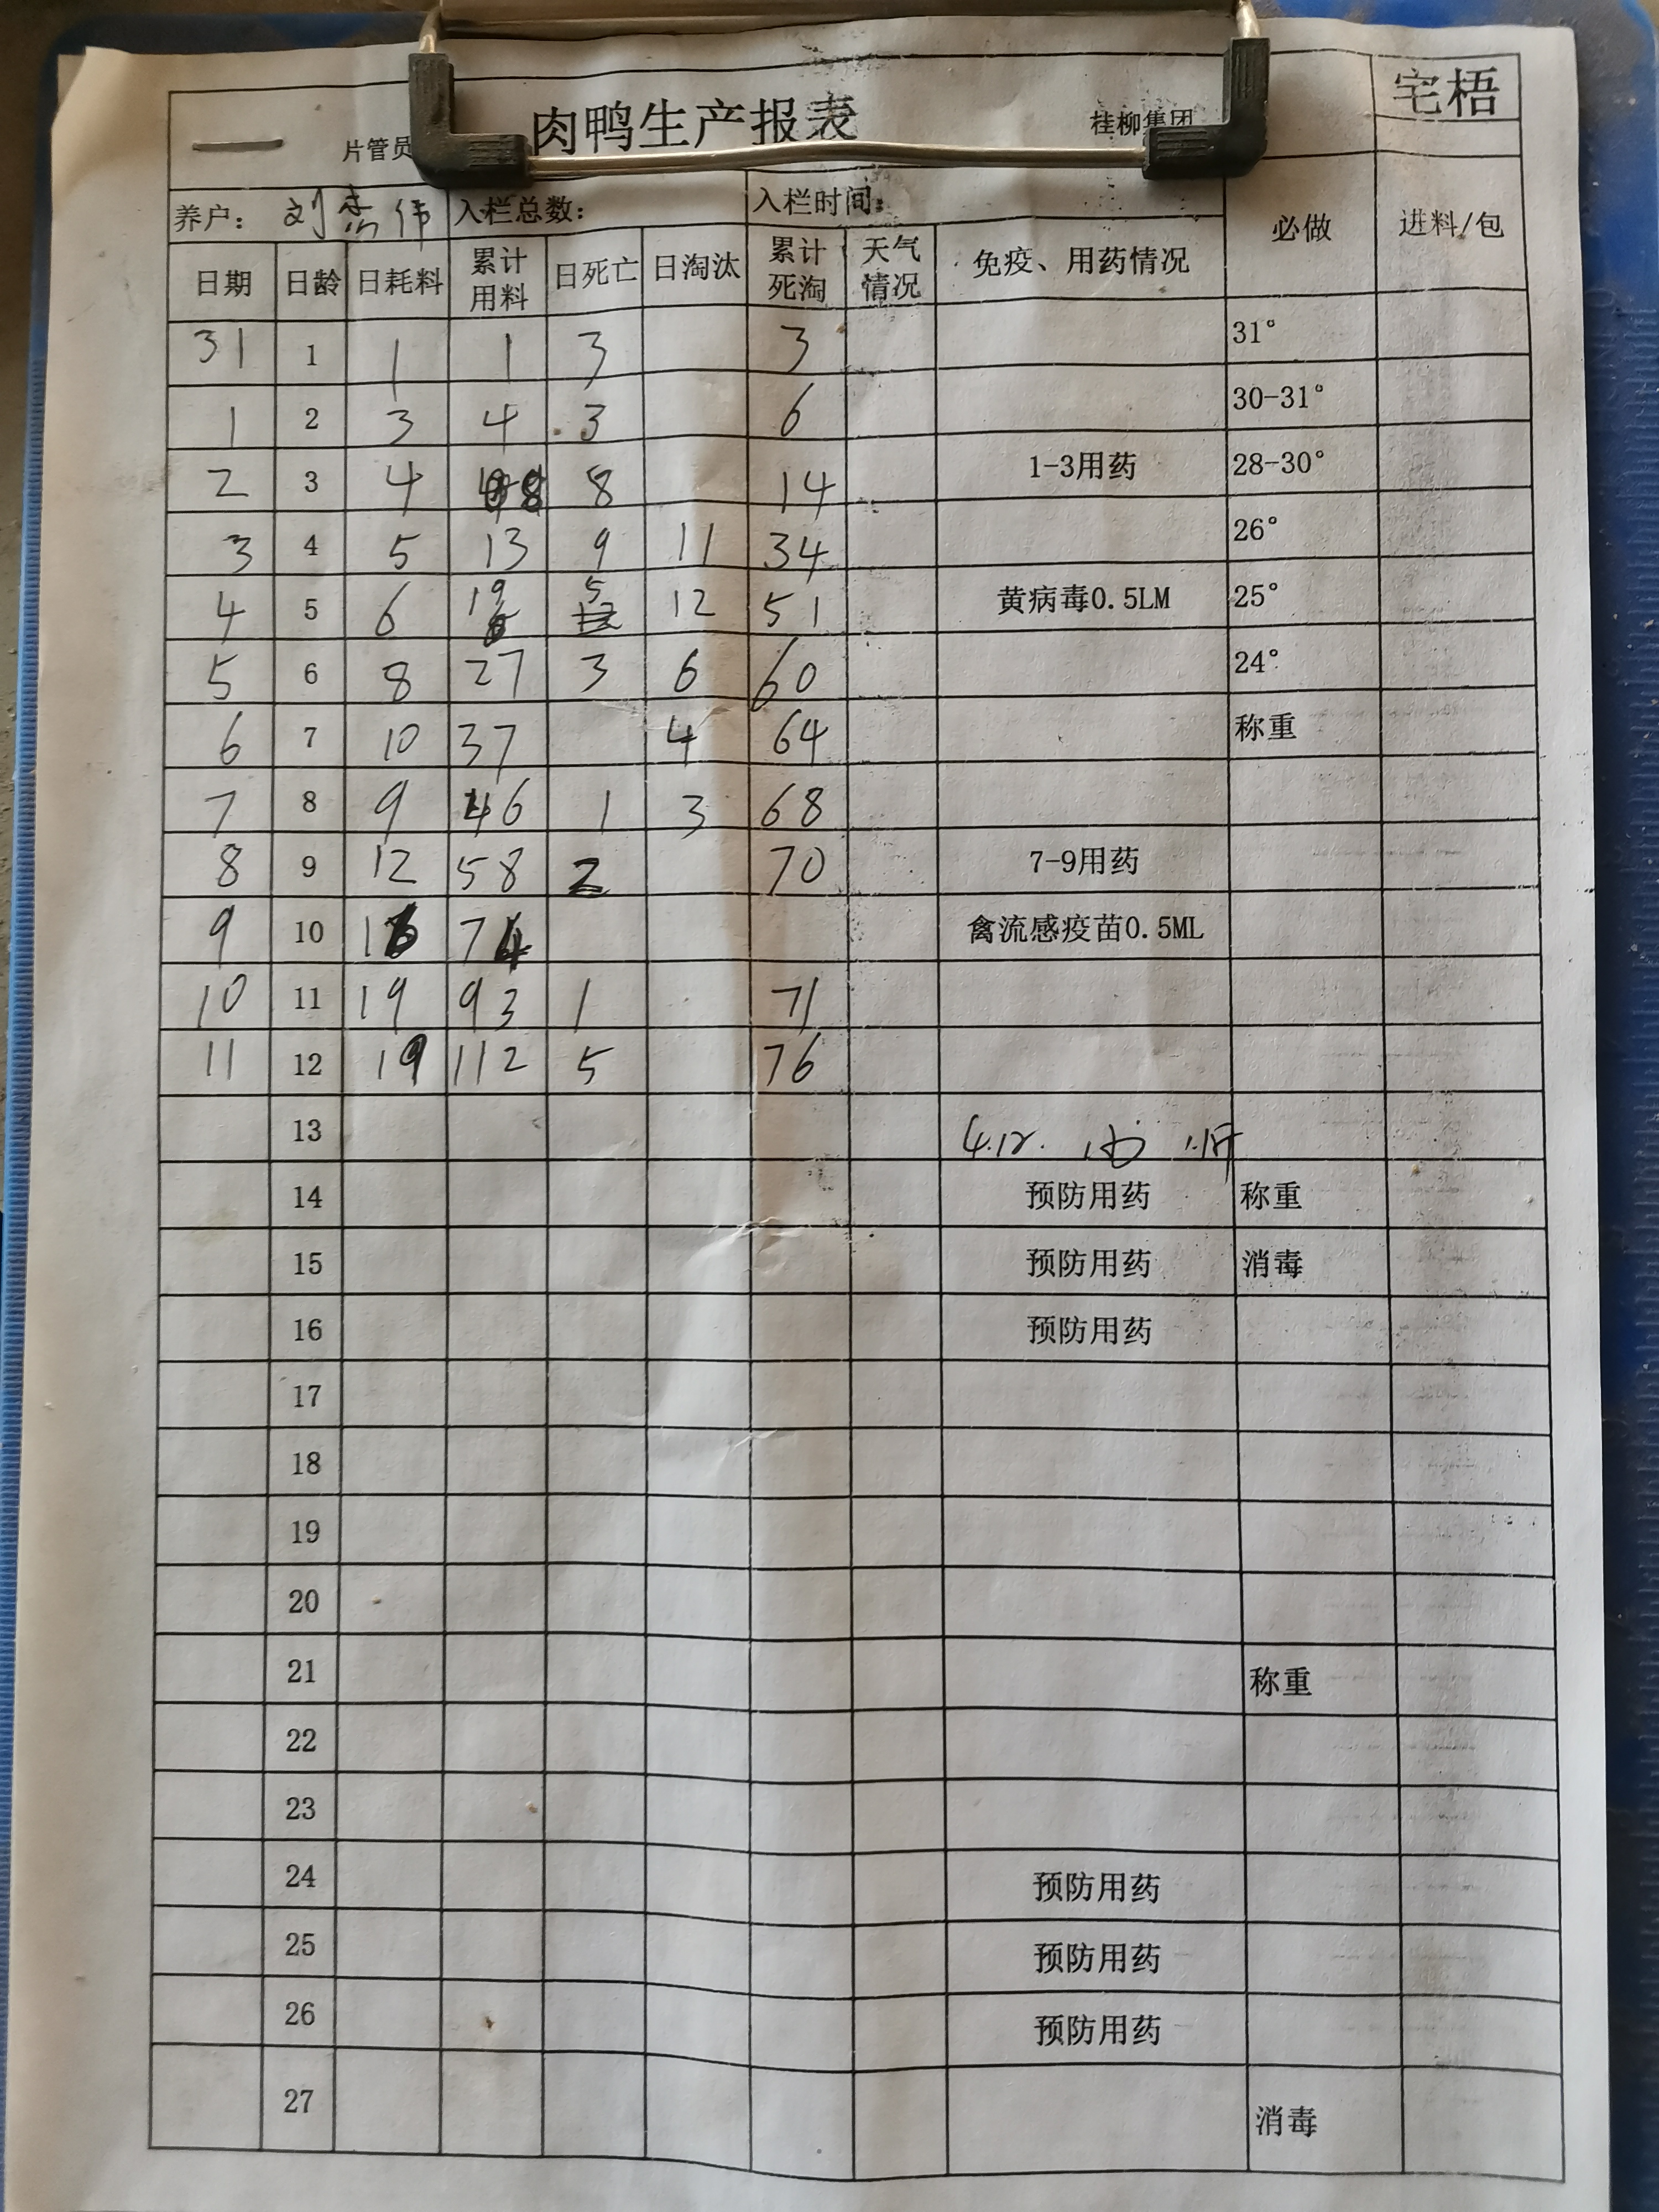 宅梧
肉鸭生产报表 桂柳集团
片管员
养户: 刘杰伟 入栏总数: 入栏时间:
日期 日龄 日耗料 累计用料 日死亡 日淘汰 累计死淘 天气情况 免疫、用药情况 必做 进料/包
31 1 1 1 3 3 31°
1 2 3 4 3 6 30-31°
2 3 4 8 8 14 1-3用药 28-30°
3 4 5 13 9 11 34 26°
4 5 6 19 5 12 51 黄病毒0.5LM 25°
5 6 8 27 3 6 60 24°
6 7 10 37 4 64 称重
7 8 9 46 1 3 68
8 9 12 58 2 70 7-9用药
9 10 16 74 禽流感疫苗0.5ML
10 11 19 93 1 71
11 12 19 112 5 76
13 4.12.
14 预防用药 称重
15 预防用药 消毒
16 预防用药
17
18
19
20
21 称重
22
23
24 预防用药
25 预防用药
26 预防用药
27 消毒